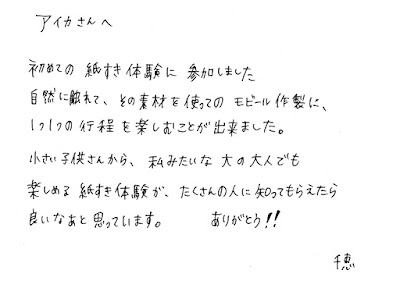 アイカさんへ
初めての 紙すき 体験に 参加しました
自然に触れて、その素材を使っての モビール作製に、
1つ1つの行程を楽しむことが出来ました。
小さい子供さんから、私みたいな 大の大人でも
楽しめる 紙すき体験が、たくさんの人に知ってもらえたら
良いなあと思っています。 ありがとう!!
千恵